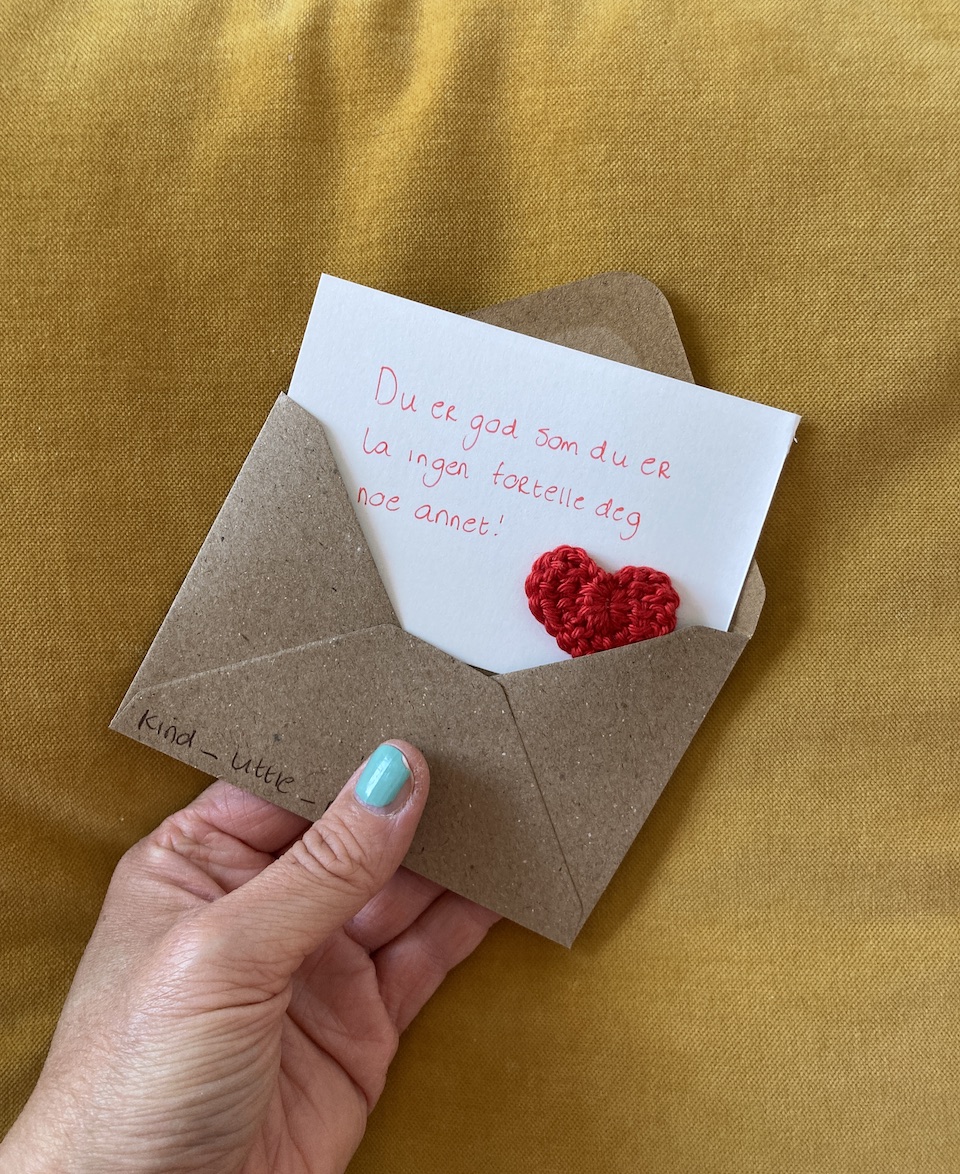 Du er god som du er
la ingen fortelle deg
noe annet!
kind_little_